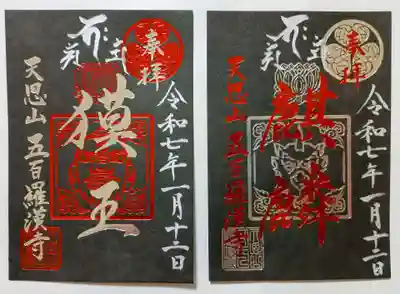 奉拝
令和七年一月十二日
獏王
天恩山 五百羅漢寺
奉拝
令和七年一月十二日
麒麟
天恩山 五百羅漢寺